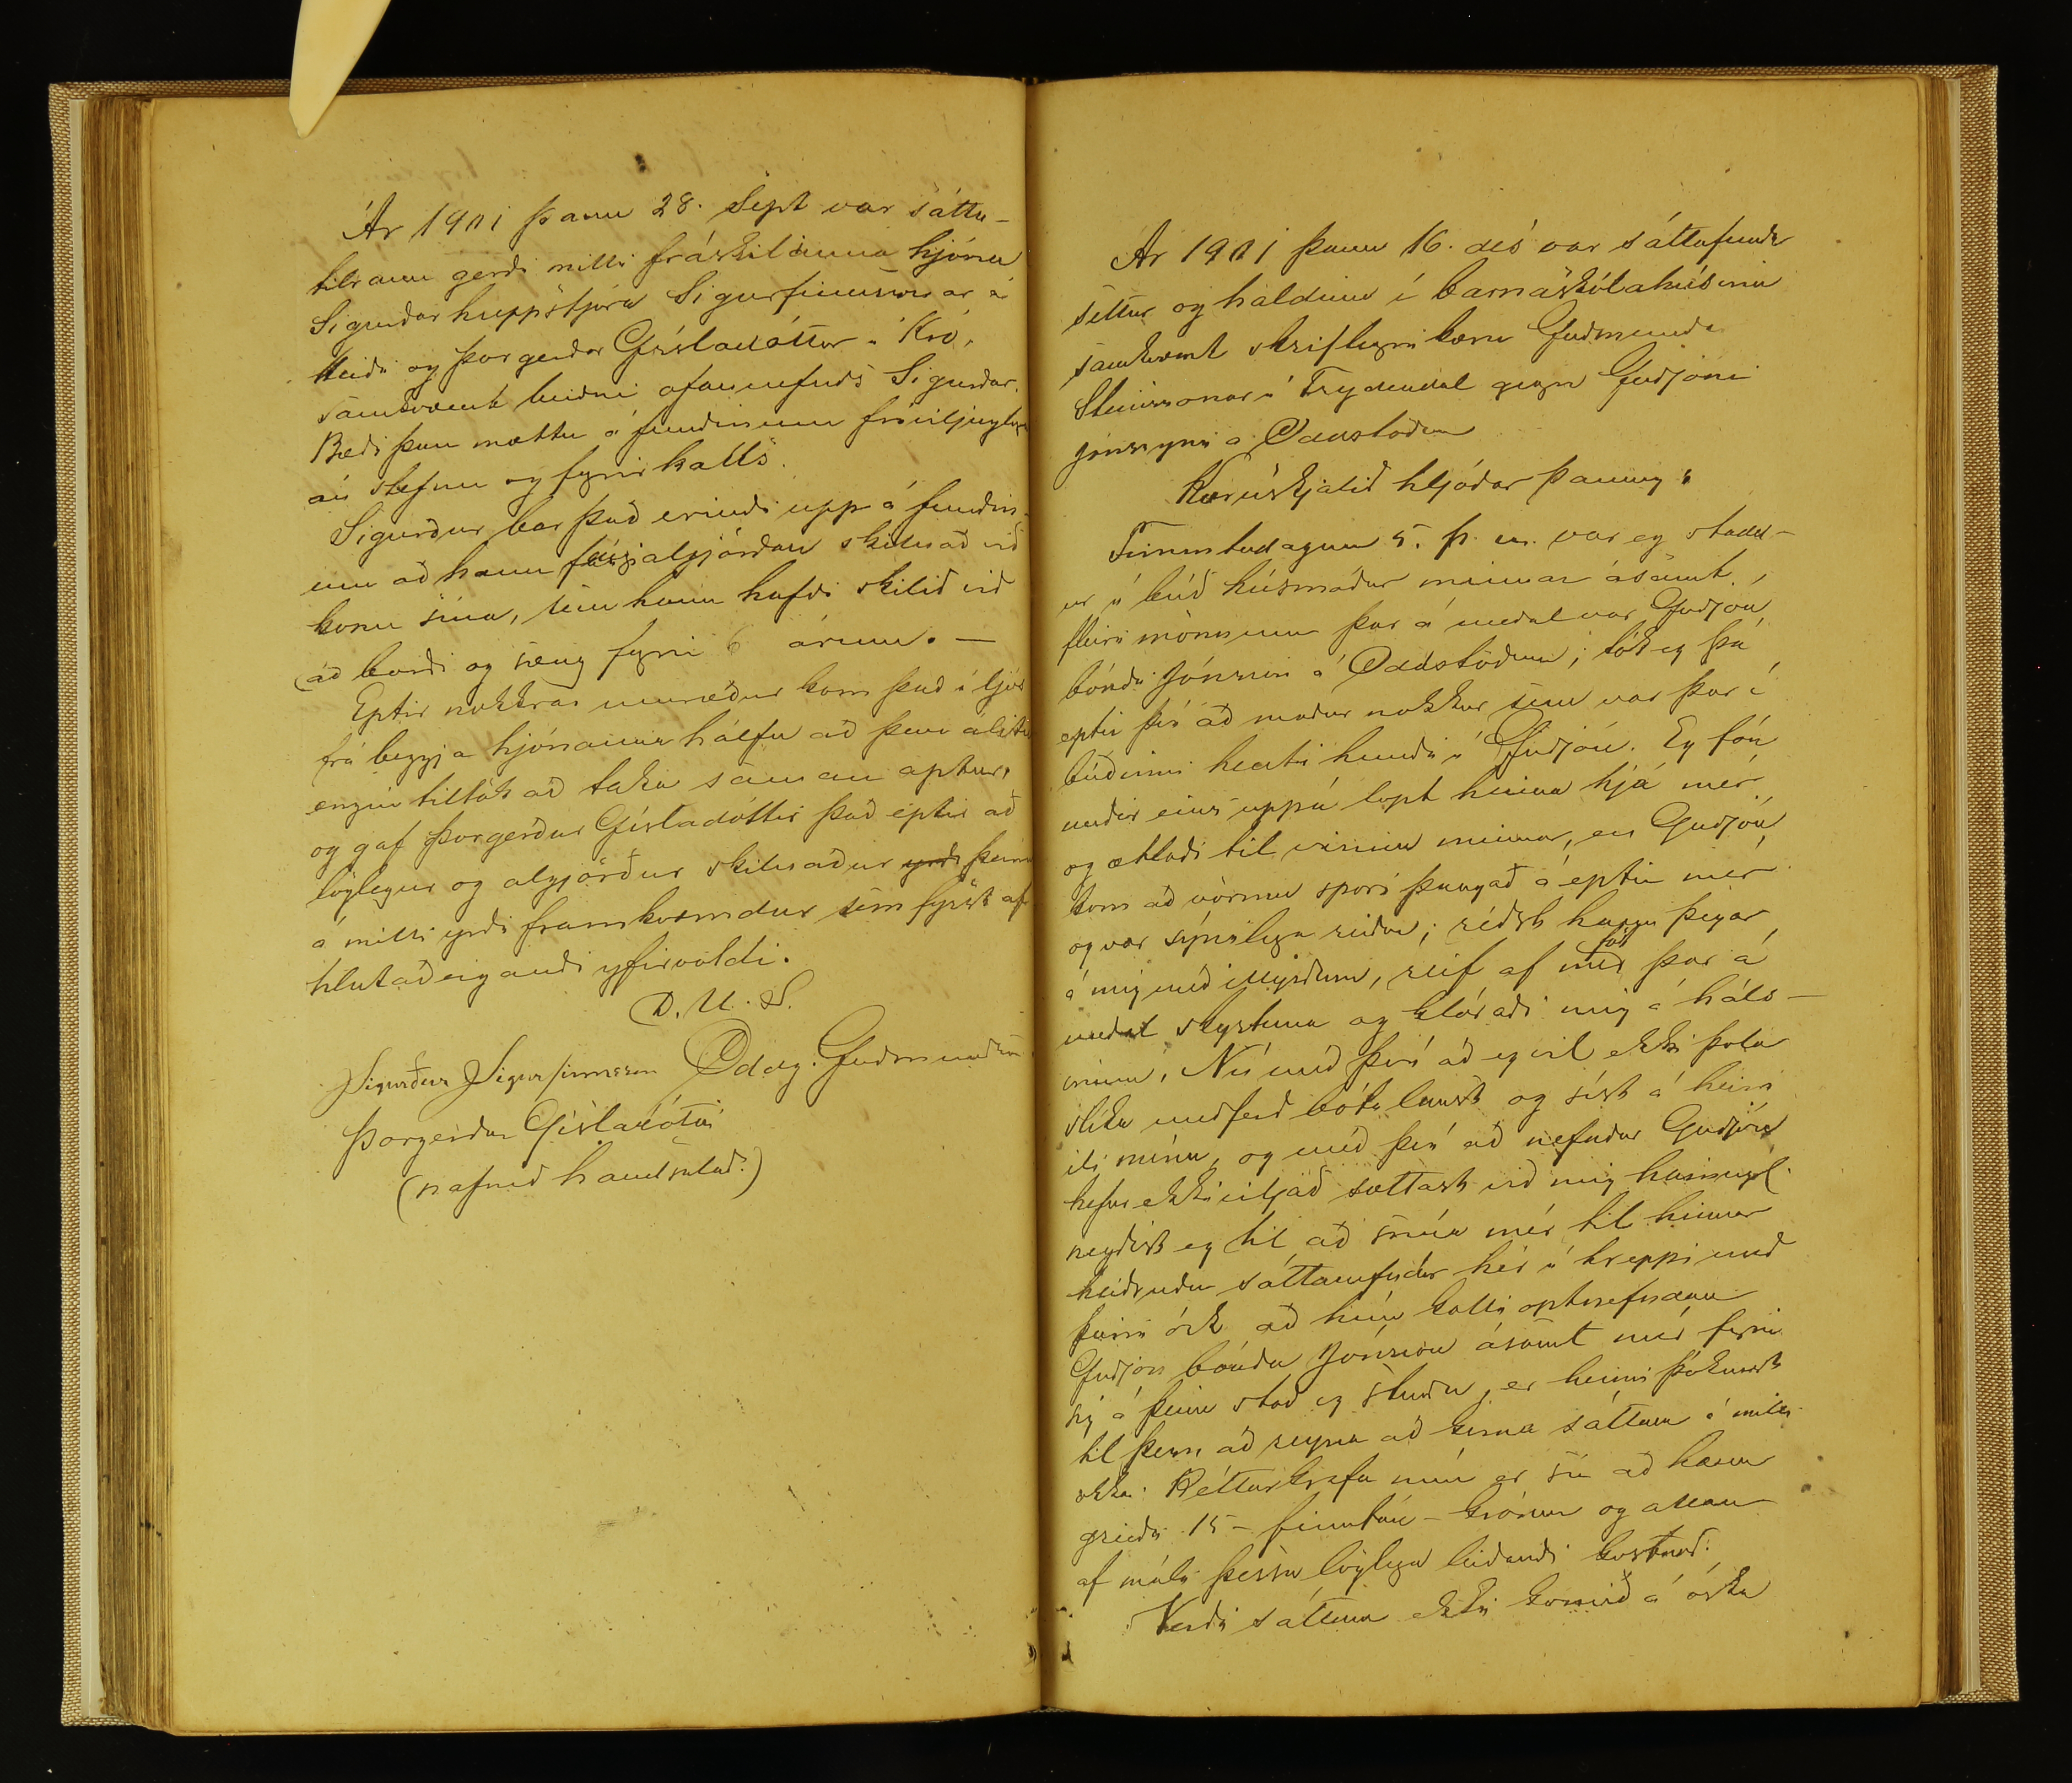 Ár 1901 þann 28. Sept var sátta-
tilraun gerð milli fráskilinna hjóna
Sigurðar hreppstjóra Sigurfinnssonar á
Heiði og Þorgerðar Gísladóttur í Kró,
samkvæmt beiðni ofannefnds Sigurðar.
Bæði þau mættu á fundinum frívilju
án stefnu og fyrirkalls.
Sigurður bar það erindi upp á fundin-
um að hann fái algjörðan skilnað við
konu sína, sem hann hafði skilið við
(að borði og sæng fyrir 6 árum. —
Eptir nokkrar umræður kom það í ljós
frá beggja hjónanna hálfu að þau áliti
engin tiltök að taka saman aptur,
og gaf Þorgerður Gísladóttir það eptir að
löglegur og algjörður skilnaður yrði þeirra
á milli yrði framkvæmdur sem fyrst af
hlutaðeigandi yfirvöldi.
D. U. S.
Sigurður Sigurfinnsson Oddg. Guðmundsson
Þorgerður Gísladóttir
(nafnið handsalað.)
Ár 1901 þann 16. des var sáttafundr
settur og haldinn í barnaskólahúsinu
samkvæmt skriflegri kæru Guðmunda
Steinssonar í Frydendal gegn Guðjóni
Jónssyni á Oddstöðum
Kæruskjalið hljóðar þannig:
Fimmtudaginn 5. þ. m. var eg stadd-
ur í búð húsmóður minnar ásamt
fleiri mönnum þar á meðal var Guðjón
bóndi Jónsson á Oddstöðum; tók eg þá
eptir því að maður nokkur sem var þar í
búðinni henti hundi í Guðjón. Eg fór
undir eins uppá lopt hinna hjá mér
og ætlaði til vinnu minnar, en Guðjón
kom að vörmu spori þangað á eptir mér
og var sýnilega reiður; réðst hann þegar
á mig með illyrðum, reif af mér föt þar á
meðal skyrtuna og klóraði mig á háls-
inum. Nú með því að eg vil ekki þola
slíka meðferð bótalaust og síst á heim
ili mínu, og með því að nefndur Guðjón
hefur ekki viljað sættast við mig heimugl.
neyðist eg til að snúa mér til hinnar
heiðruðu sáttanefndar hér í hreppi með
þeirri ósk að hún kalli optnefndan
Guðjón bónda Jónsson ásamt mér fyrir
sig á þeim stað og stundu, er henni þóknast
til þess að reyna að koma sáttum á milli
okkar. Réttarkrafa mín er sú að hann
greiði 15 - fimmtán - krónur og allan
af máli þessu löglega leiðandi kostnað.
Verði sáttum ekki komið á óska